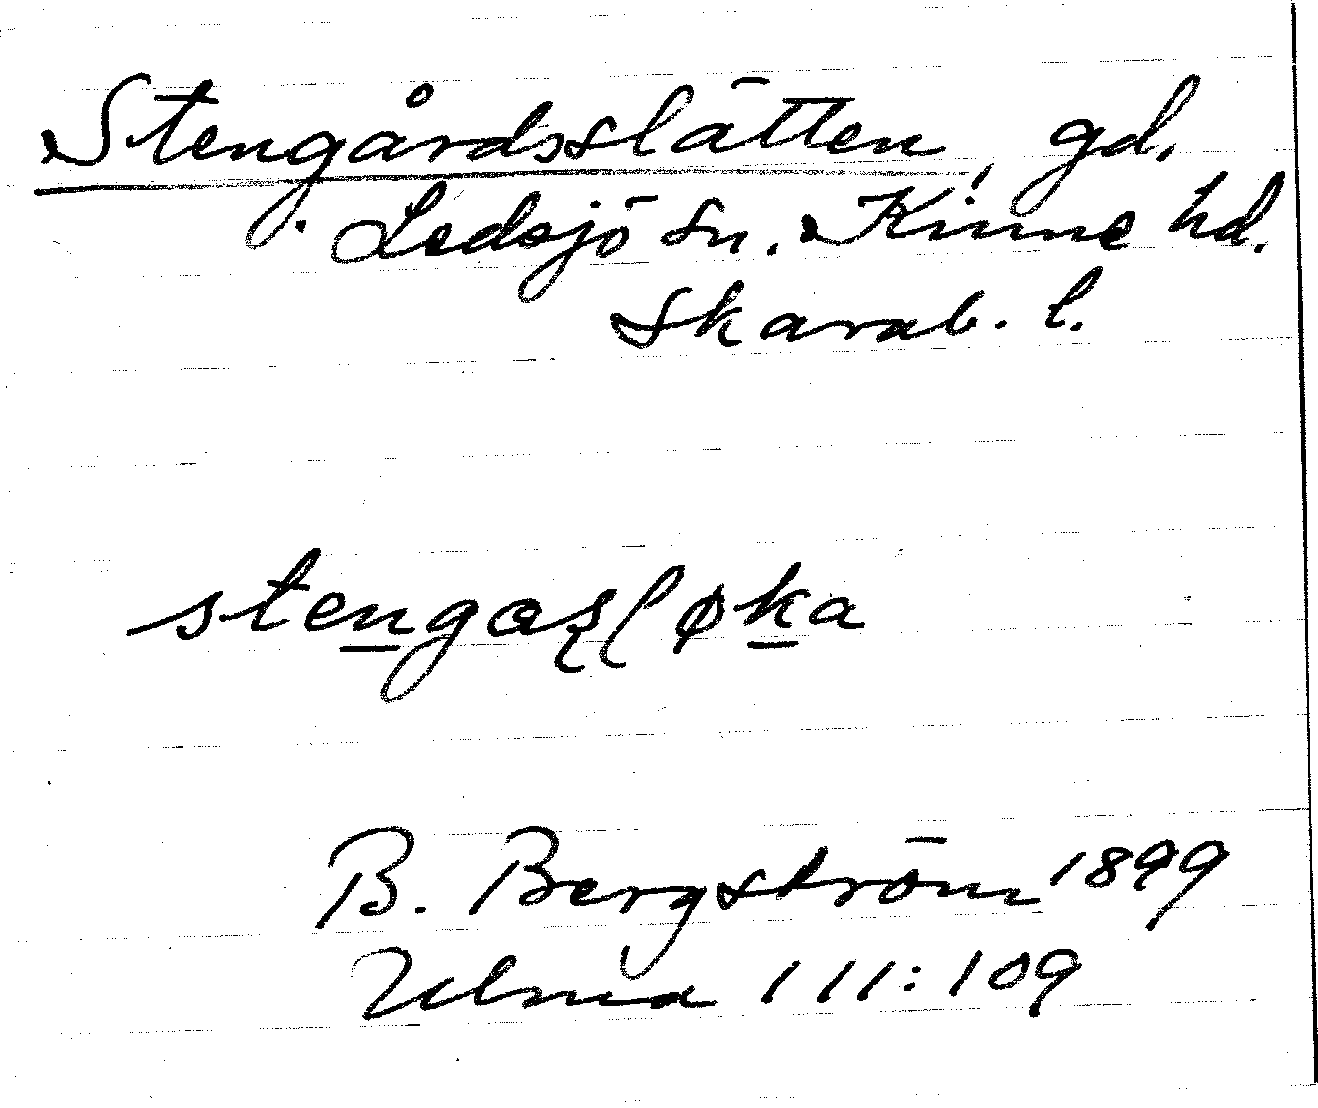 Stengårdsslätten, gd.
Ledsjö sn. Kinne hd.
Skarab. l.
B. Bergström 1899
Ulma 111:109